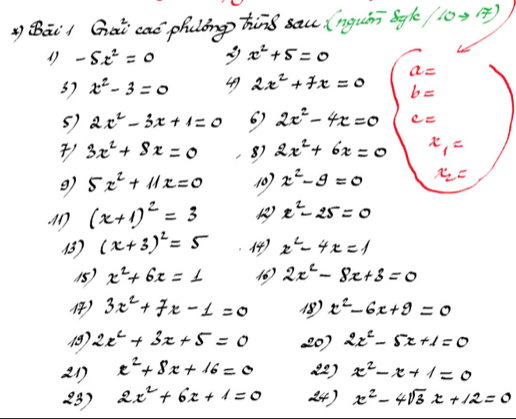 *) Bài 1 Giải các phương trình sau (nguồn Sgk/10→17)
1) -5x² = 0 2) x² + 5 = 0
3) x² - 3 = 0 4) 2x² + 7x = 0
5) 2x² - 3x + 1 = 0 6) 2x² - 4x = 0
7) 3x² + 8x = 0 8) 2x² + 6x = 0
9) 5x² + 11x = 0 10) x² - 9 = 0
11) (x+1)² = 3 12) x² - 25 = 0
13) (x+3)² = 5 14) x² - 4x = 1
15) x² + 6x = 1 16) 2x² - 8x + 3 = 0
17) 3x² + 7x - 1 = 0 18) x² - 6x + 9 = 0
19) 2x² + 3x + 5 = 0 20) 2x² - 5x + 1 = 0
21) x² + 8x + 16 = 0 22) x² - x + 1 = 0
23) 2x² + 6x + 1 = 0 24) x² - 4√3 x + 12 = 0
a =
b =
c =
x₁ =
x₂ =